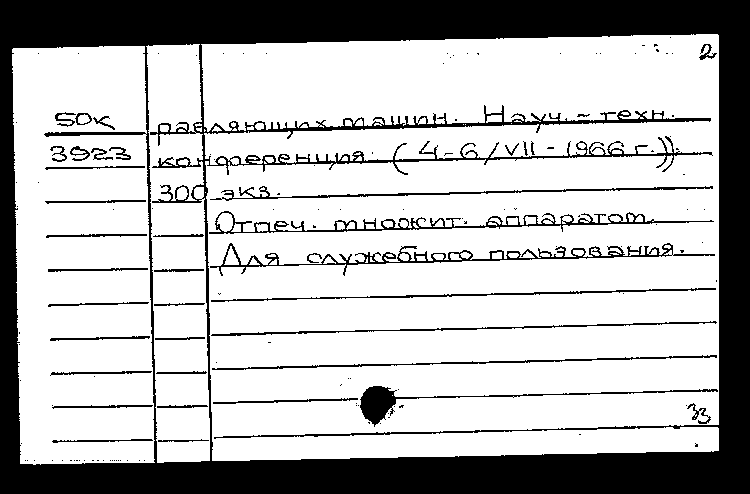 2
50к равляющих машин. Науч.-техн.
3923 конференция. (4-6/VII-1966 г.)).
300 экз.
Отпеч. множит. аппаратом.
Для служебного пользования.
33